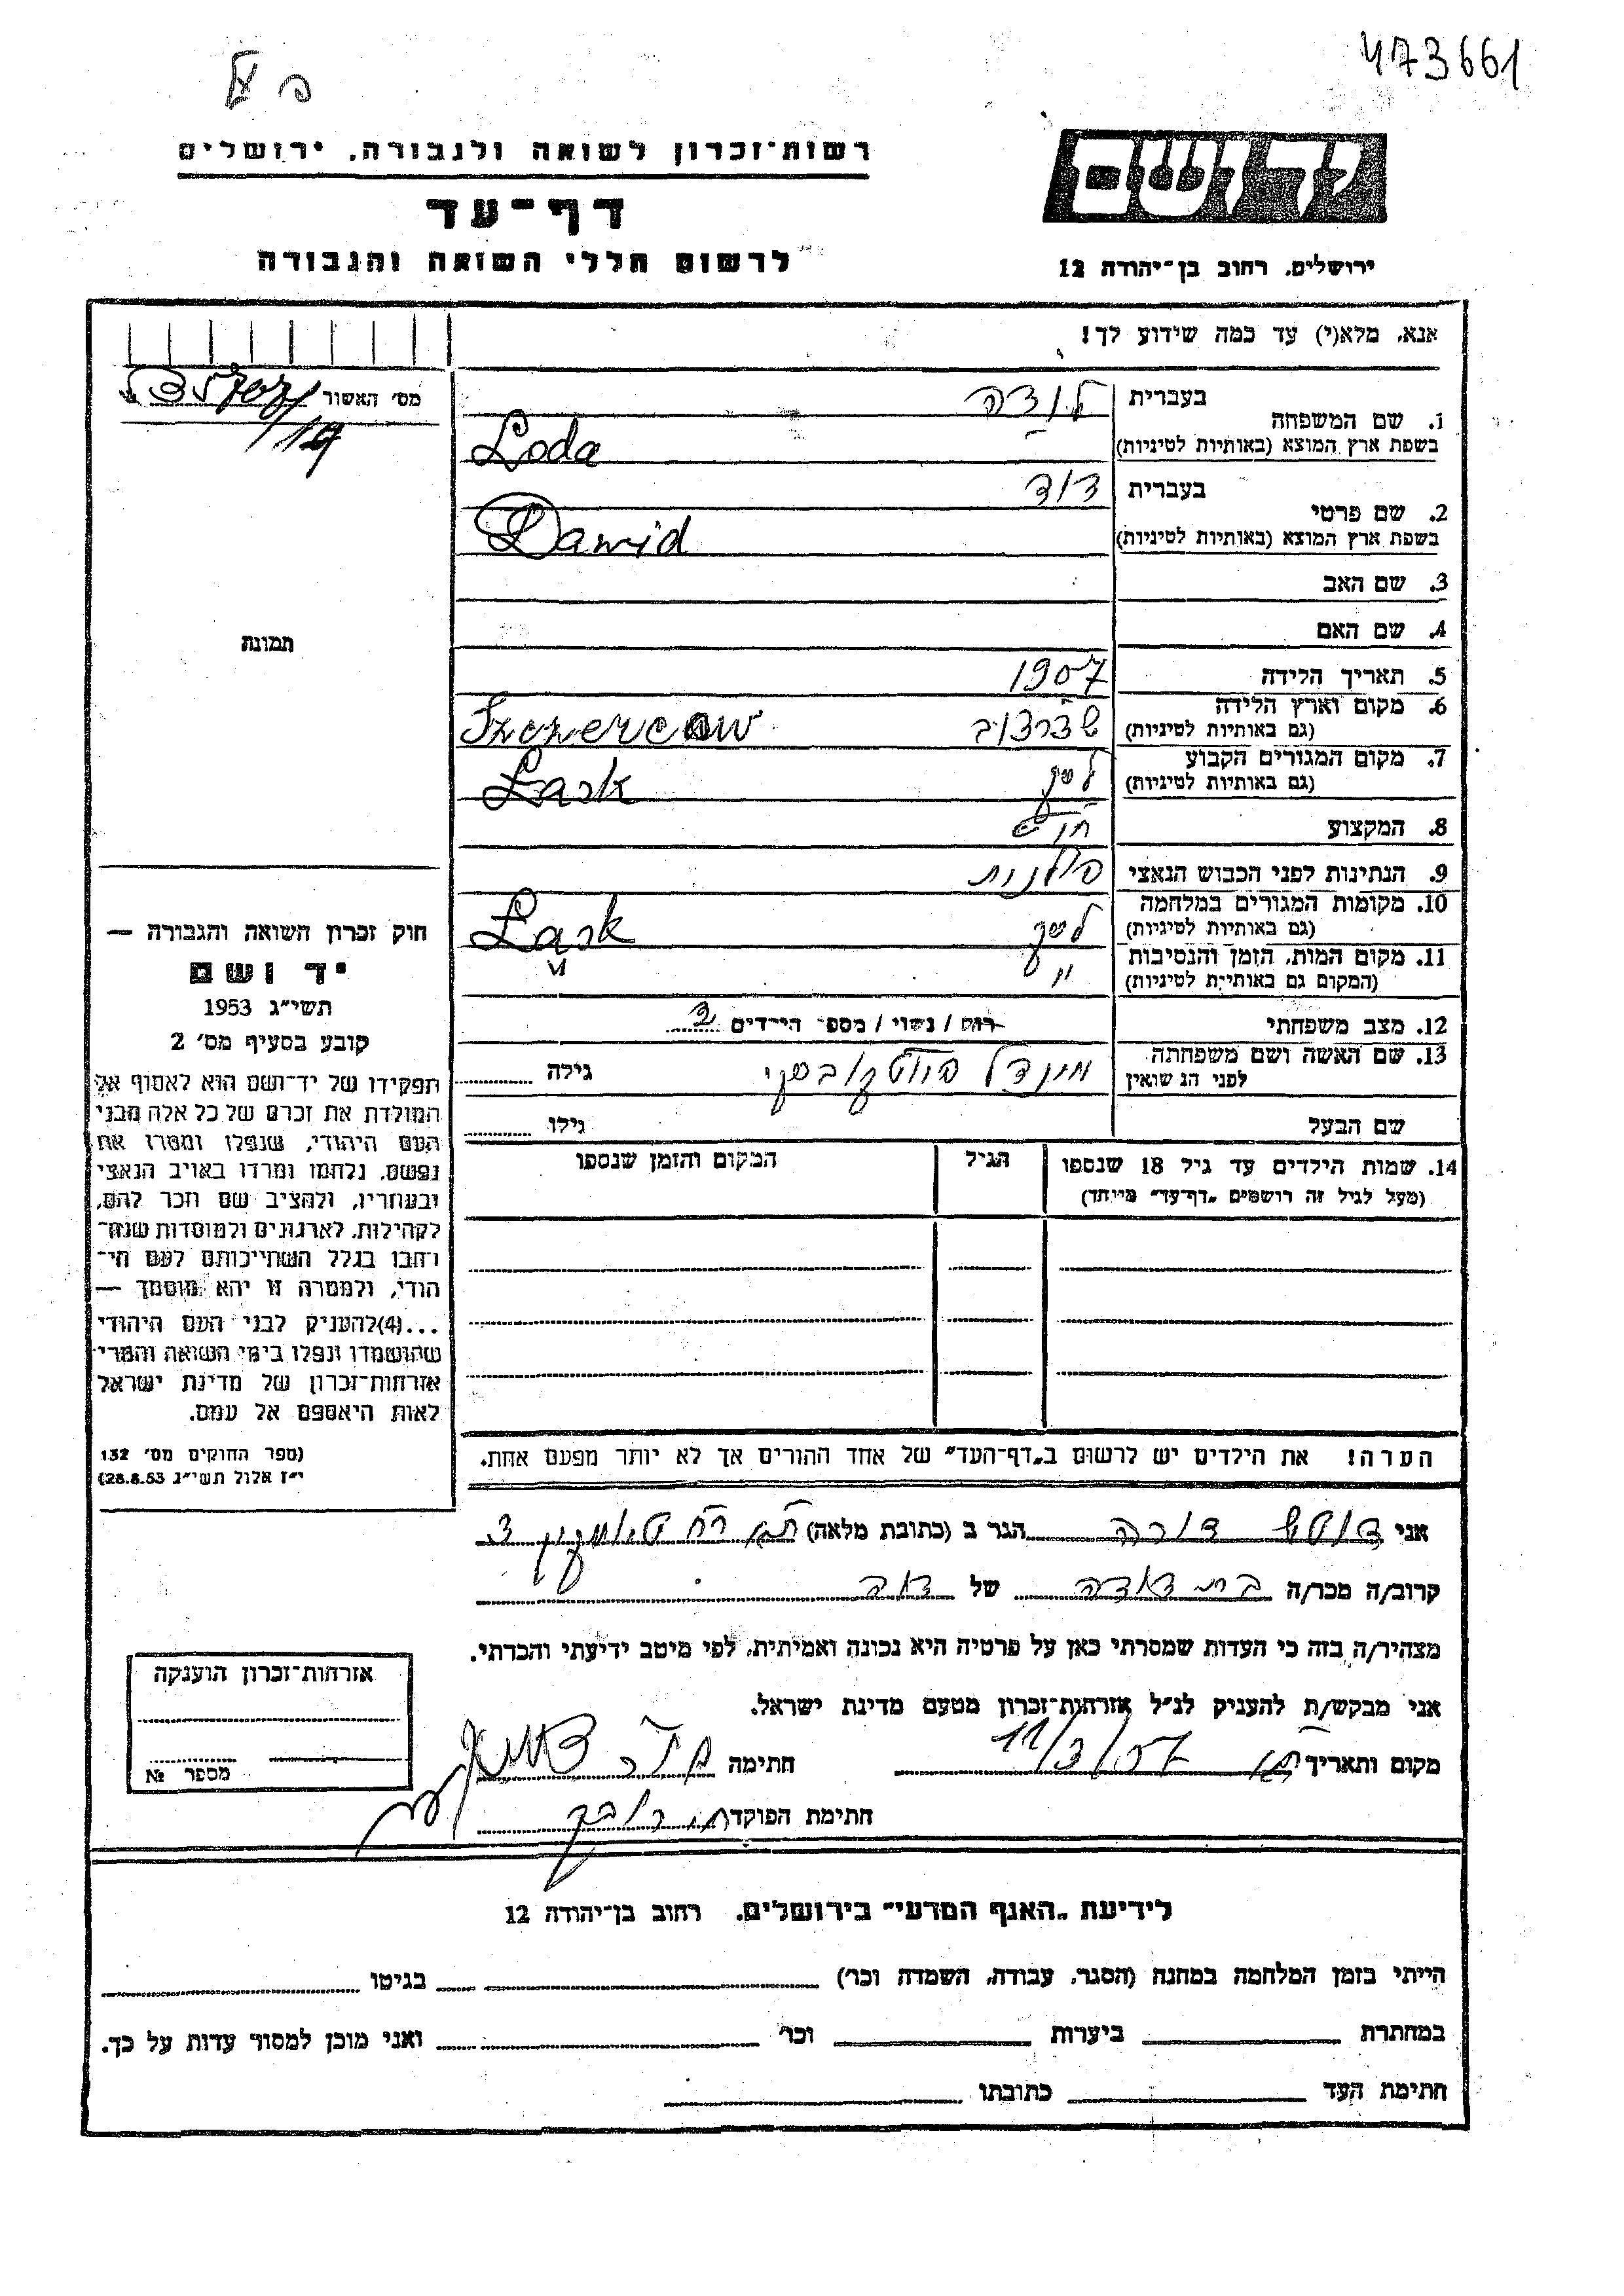 473661
רשות־זכרון לשואה ולגבורה, ירושלים
דף־עד
לרשום חללי השואה והגבורה
יד ושם
ירושלים, רחוב בן־יהודה 12
אנא, מלא(י) עד כמה שידוע לך!
מס׳ האשור
1. שם המשפחה
בעברית לודה
בשפת ארץ המוצא (באותיות לטיניות) Loda
2. שם פרטי
בעברית דוד
בשפת ארץ המוצא (באותיות לטיניות) Dawid
3. שם האב
4. שם האם
5. תאריך הלידה 1907
6. מקום וארץ הלידה
(גם באותיות לטיניות) Szczercow
7. מקום המגורים הקבוע
(גם באותיות לטיניות) לסק Lask
8. המקצוע
9. הנתינות לפני הכבוש הנאצי פולנית
10. מקומות המגורים במלחמה
(גם באותיות לטיניות) לסק Lask
11. מקום המות, הזמן והנסיבות
(המקום גם באותיית לטיניות) " "
12. מצב משפחתי רוק / נשוי / מספר הילדים
13. שם האשה ושם משפחתה
לפני הנשואין גילה
שם הבעל גילו
14. שמות הילדים עד גיל 18 שנספו הגיל המקום והזמן שנספו
(מעל לגיל זה רושמים „דף־עד״ מיוחד)
הערה! את הילדים יש לרשום ב„דף־העד״ של אחד ההורים אך לא יותר מפעם אחת.
תמונה
חוק זכרון השואה והגבורה —
יד ושם
תשי״ג 1953
קובע בסעיף מס׳ 2
תפקידו של יד־ושם הוא לאסוף אל
המולדת את זכרם של כל אלה מבני
העם היהודי, שנפלו ומסרו את
נפשם, נלחמו ומרדו באויב הנאצי
ובעוזריו, ולהציב שם וזכר להם,
לקהילות, לארגונים ולמוסדות שנח־
רבו בגלל השתייכותם לעם הי־
הודי, ולמטרה זו יהא מוסמך —
...(4)להעניק לבני העם היהודי
שהושמדו ונפלו בימי השואה והמרי
אזרחות־זכרון של מדינת ישראל
לאות היאספם אל עמם.
(ספר החוקים מס׳ 132
י״ז אלול תשי״ג 28.8.53)
אני דורה הגר ב (כתובת מלאה)
קרוב/ה מכר/ה של
מצהיר/ה בזה כי העדות שמסרתי כאן על פרטיה היא נכונה ואמיתית, לפי מיטב ידיעתי והכרתי.
אני מבקש/ת להעניק לנ״ל אזרחות־זכרון מטעם מדינת ישראל.
מקום ותאריך 11/3/57 חתימה
חתימת הפוקד
אזרחות־זכרון הוענקה
מספר №
לידיעת „האגף המדעי״ בירושלים, רחוב בן־יהודה 12
הייתי בזמן המלחמה במחנה (הסגר, עבודה, השמדה וכו׳) בגיטו
במחתרת ביערות וכו׳ ואני מוכן למסור עדות על כך.
חתימת העד כתובתו